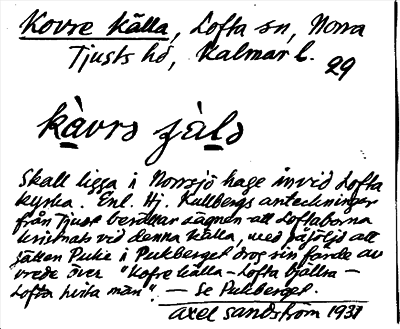 Kovre källa, Lofta sn, Norra
Tjusts hd, Kalmar l.
29
kàvrə jàlə
Skall ligga i Norrsjö hage invid Lofta
kyrka. Enl. Hj. Kullbergs anteckningar
från Tjust berättar sägnen att Loftaborna
kristnats vid denna källa, med påföljd att
jätten Puke i Pukberget drog sin färde av
vrede över "Kofre källa – Lofta bjällra –
Lofta hvita män". — Se Pukberget.
Axel Sandström 1931